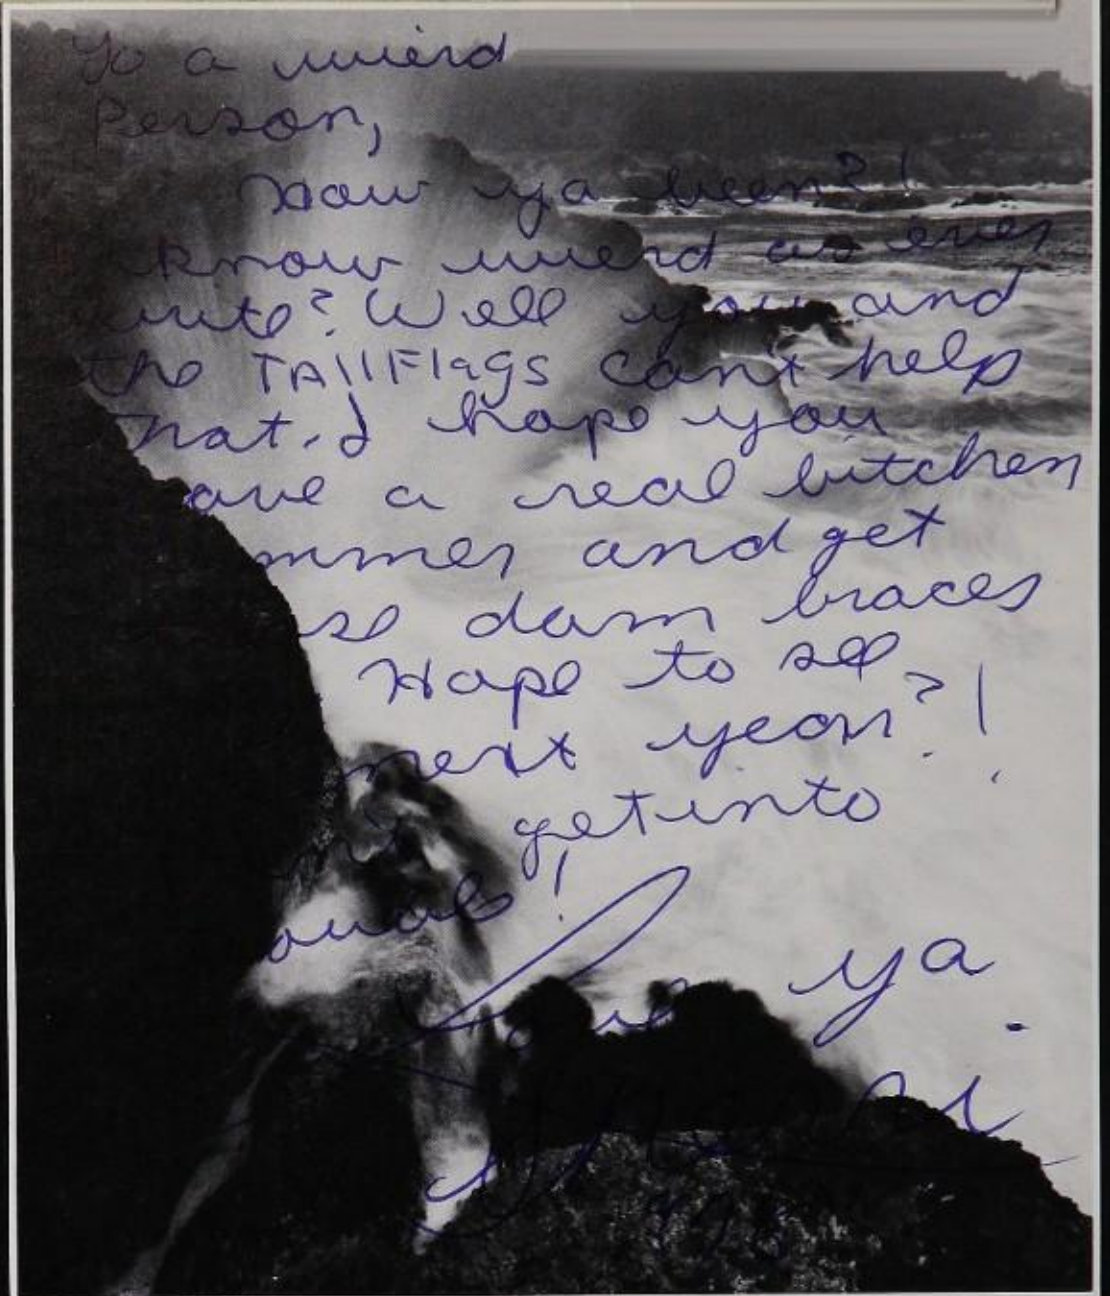 To a wierd
Person,
How ya been?!
know wierd as ever
write? Well you and
the TAllFlags can't help
that. I hope you
ave a real bitchen
mmer and get
se darn braces
Hope to see
next year?!
get into
ya